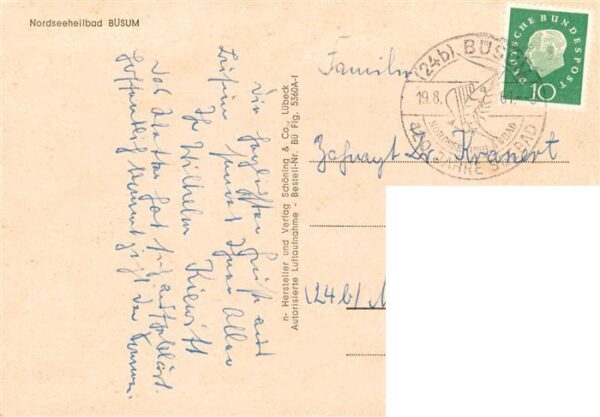 Nordseeheilbad BÜSUM
Die herzlichsten Grüße aus
Büsum sendet Ihnen Allen
Ihr Wilhelm Kiewitt
Das Wetter hat sich aufgeklärt.
Hoffentlich kommt jetzt der Sommer.
n- Hersteller und Verlag Schöning & Co., Lübeck
Autorisierte Luftaufnahme - Bestell-Nr. Bü Flg. 5360A-I
DEUTSCHE BUNDESPOST
10
(24b) BÜSUM
19.8.61
NORDSEEHEILBAD
JAHRE
Familie
Zahnarzt Dr. Kranert
(24b)